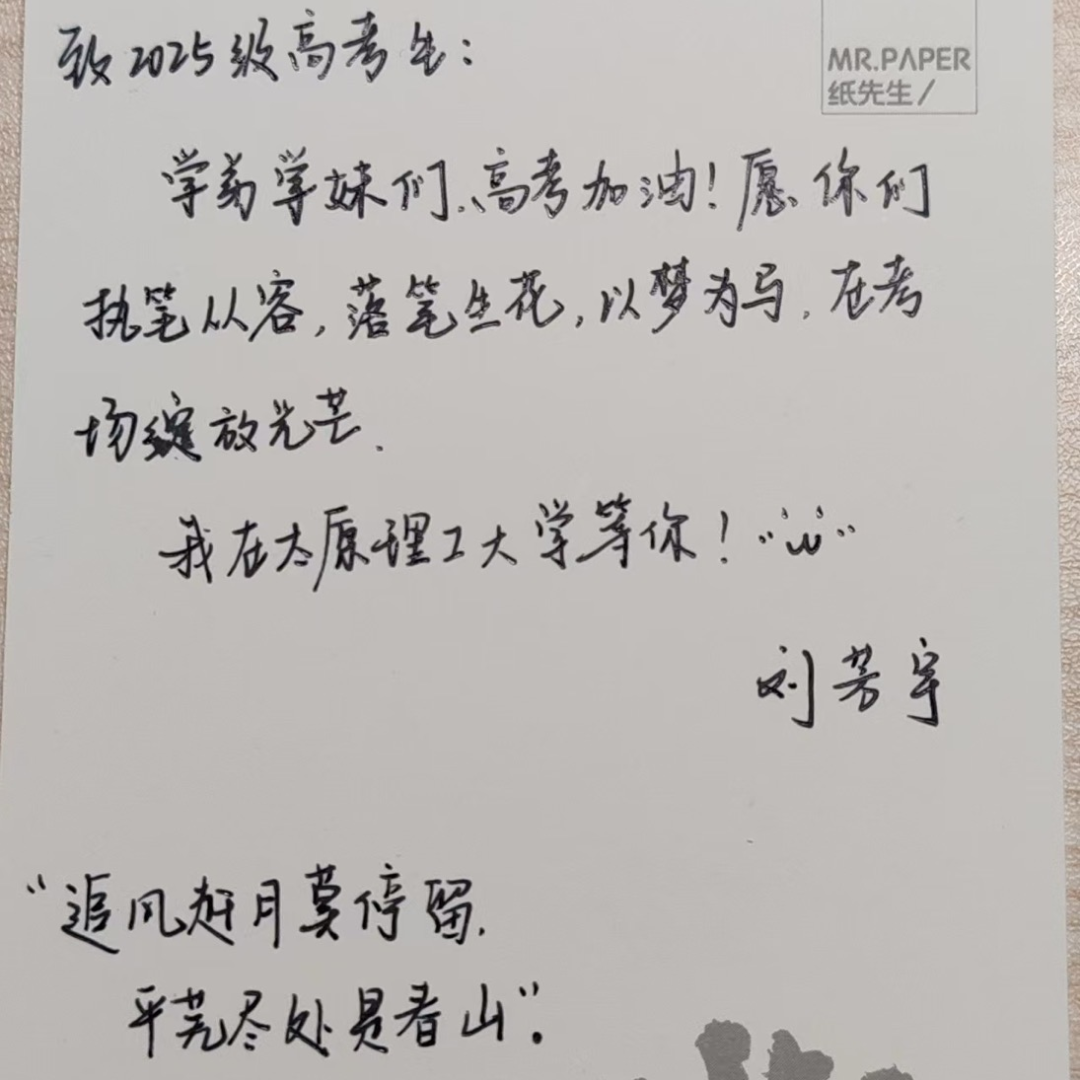 MR.PAPER
纸先生/
致2025级高考生：
学弟学妹们、高考加油！愿你们
执笔从容，落笔生花，以梦为马，在考
场绽放光芒.
我在太原理工大学等你！
刘芳宇
“追风赶月莫停留，
平芜尽处是春山”.